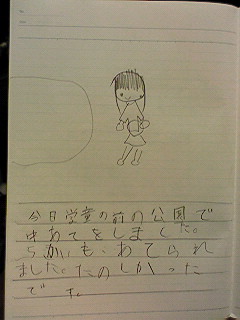 今日学童の前の公園で
中あてをしました。
5かいも、あてられ
ました。たのしかった
でした